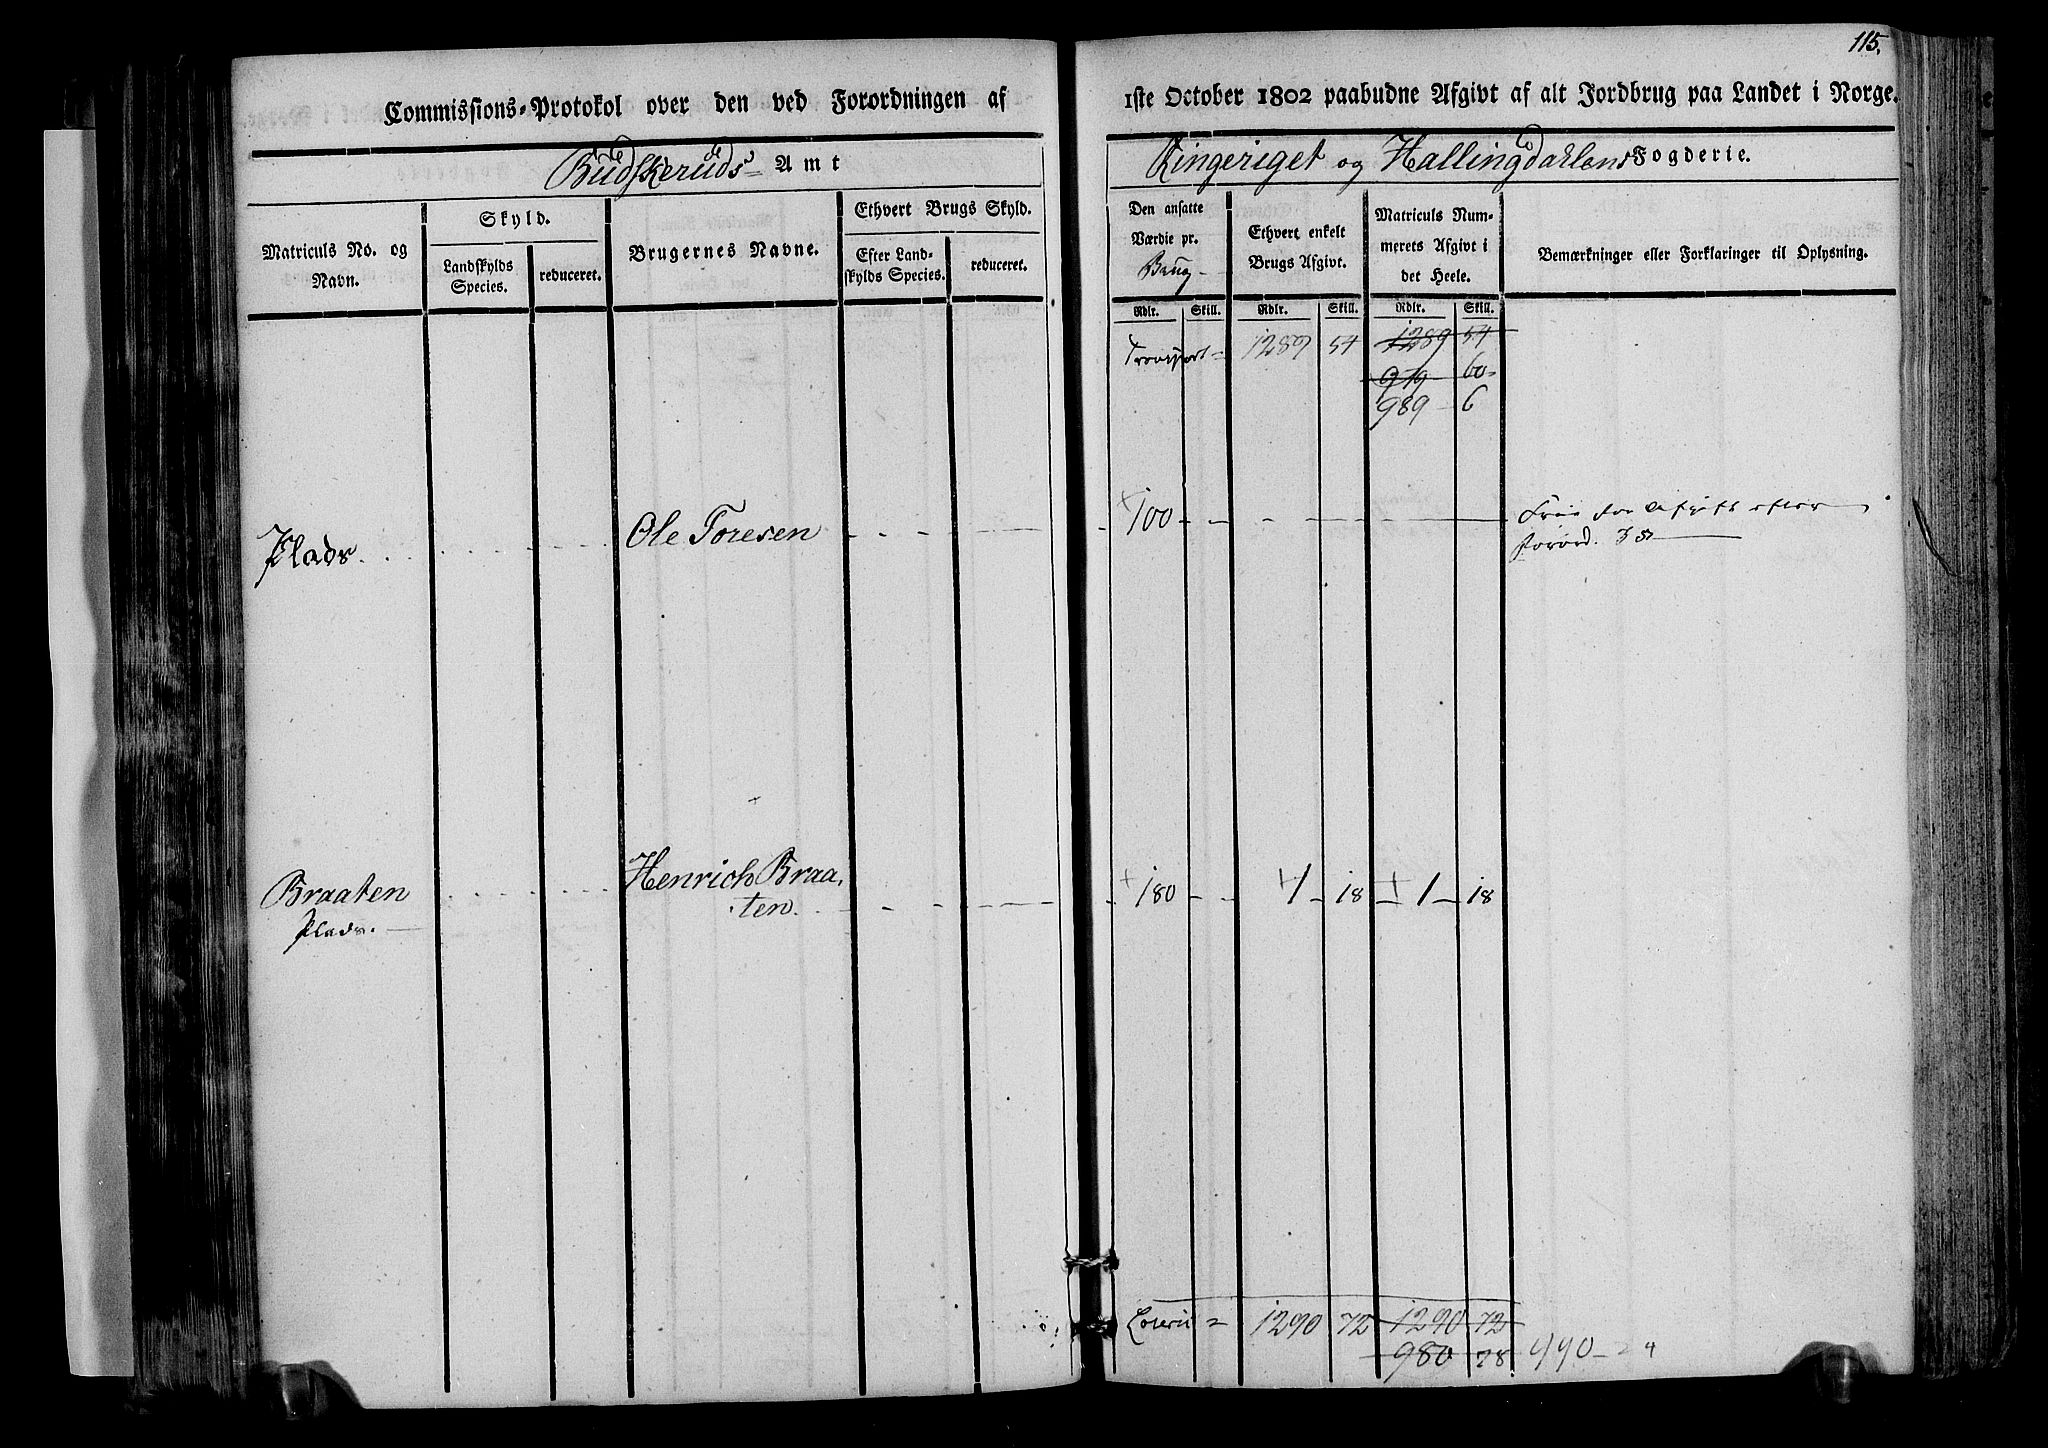 115.
Commissions-Protokol over den ved Forordningen af 1ste October 1802 paabudne Afgivt af alt Jordbrug paa Landet i Norge.
Budskeruds Amt
Ringeriget og Hallingdahlens Fogderie.
Matriculs No. og Navn.
Skyld.
Landskylds Species.
reduceret.
Brugernes Navne.
Ethvert Brugs Skyld.
Efter Landskylds Species.
reduceret.
Den ansatte Værdie pr. Brug
Ethvert enkelt Brugs Afgivt.
Matriculs Nummerets Afgivt i det Heele.
Bemærkninger eller Forklaringer til Oplysning.
Rdlr. Skill. Rdlr. Skill. Rdlr. Skill.
Transport = 1289 54 1289 54
979 60
989 6
Plads. Ole Toresen 100 Frie for Afgift efter
Forord. 3 §
Braaten Henrich Braa- 180 1 18 1 18
Plads. ten.
Lateris = 1290 72 1290 72
980 78 990 24